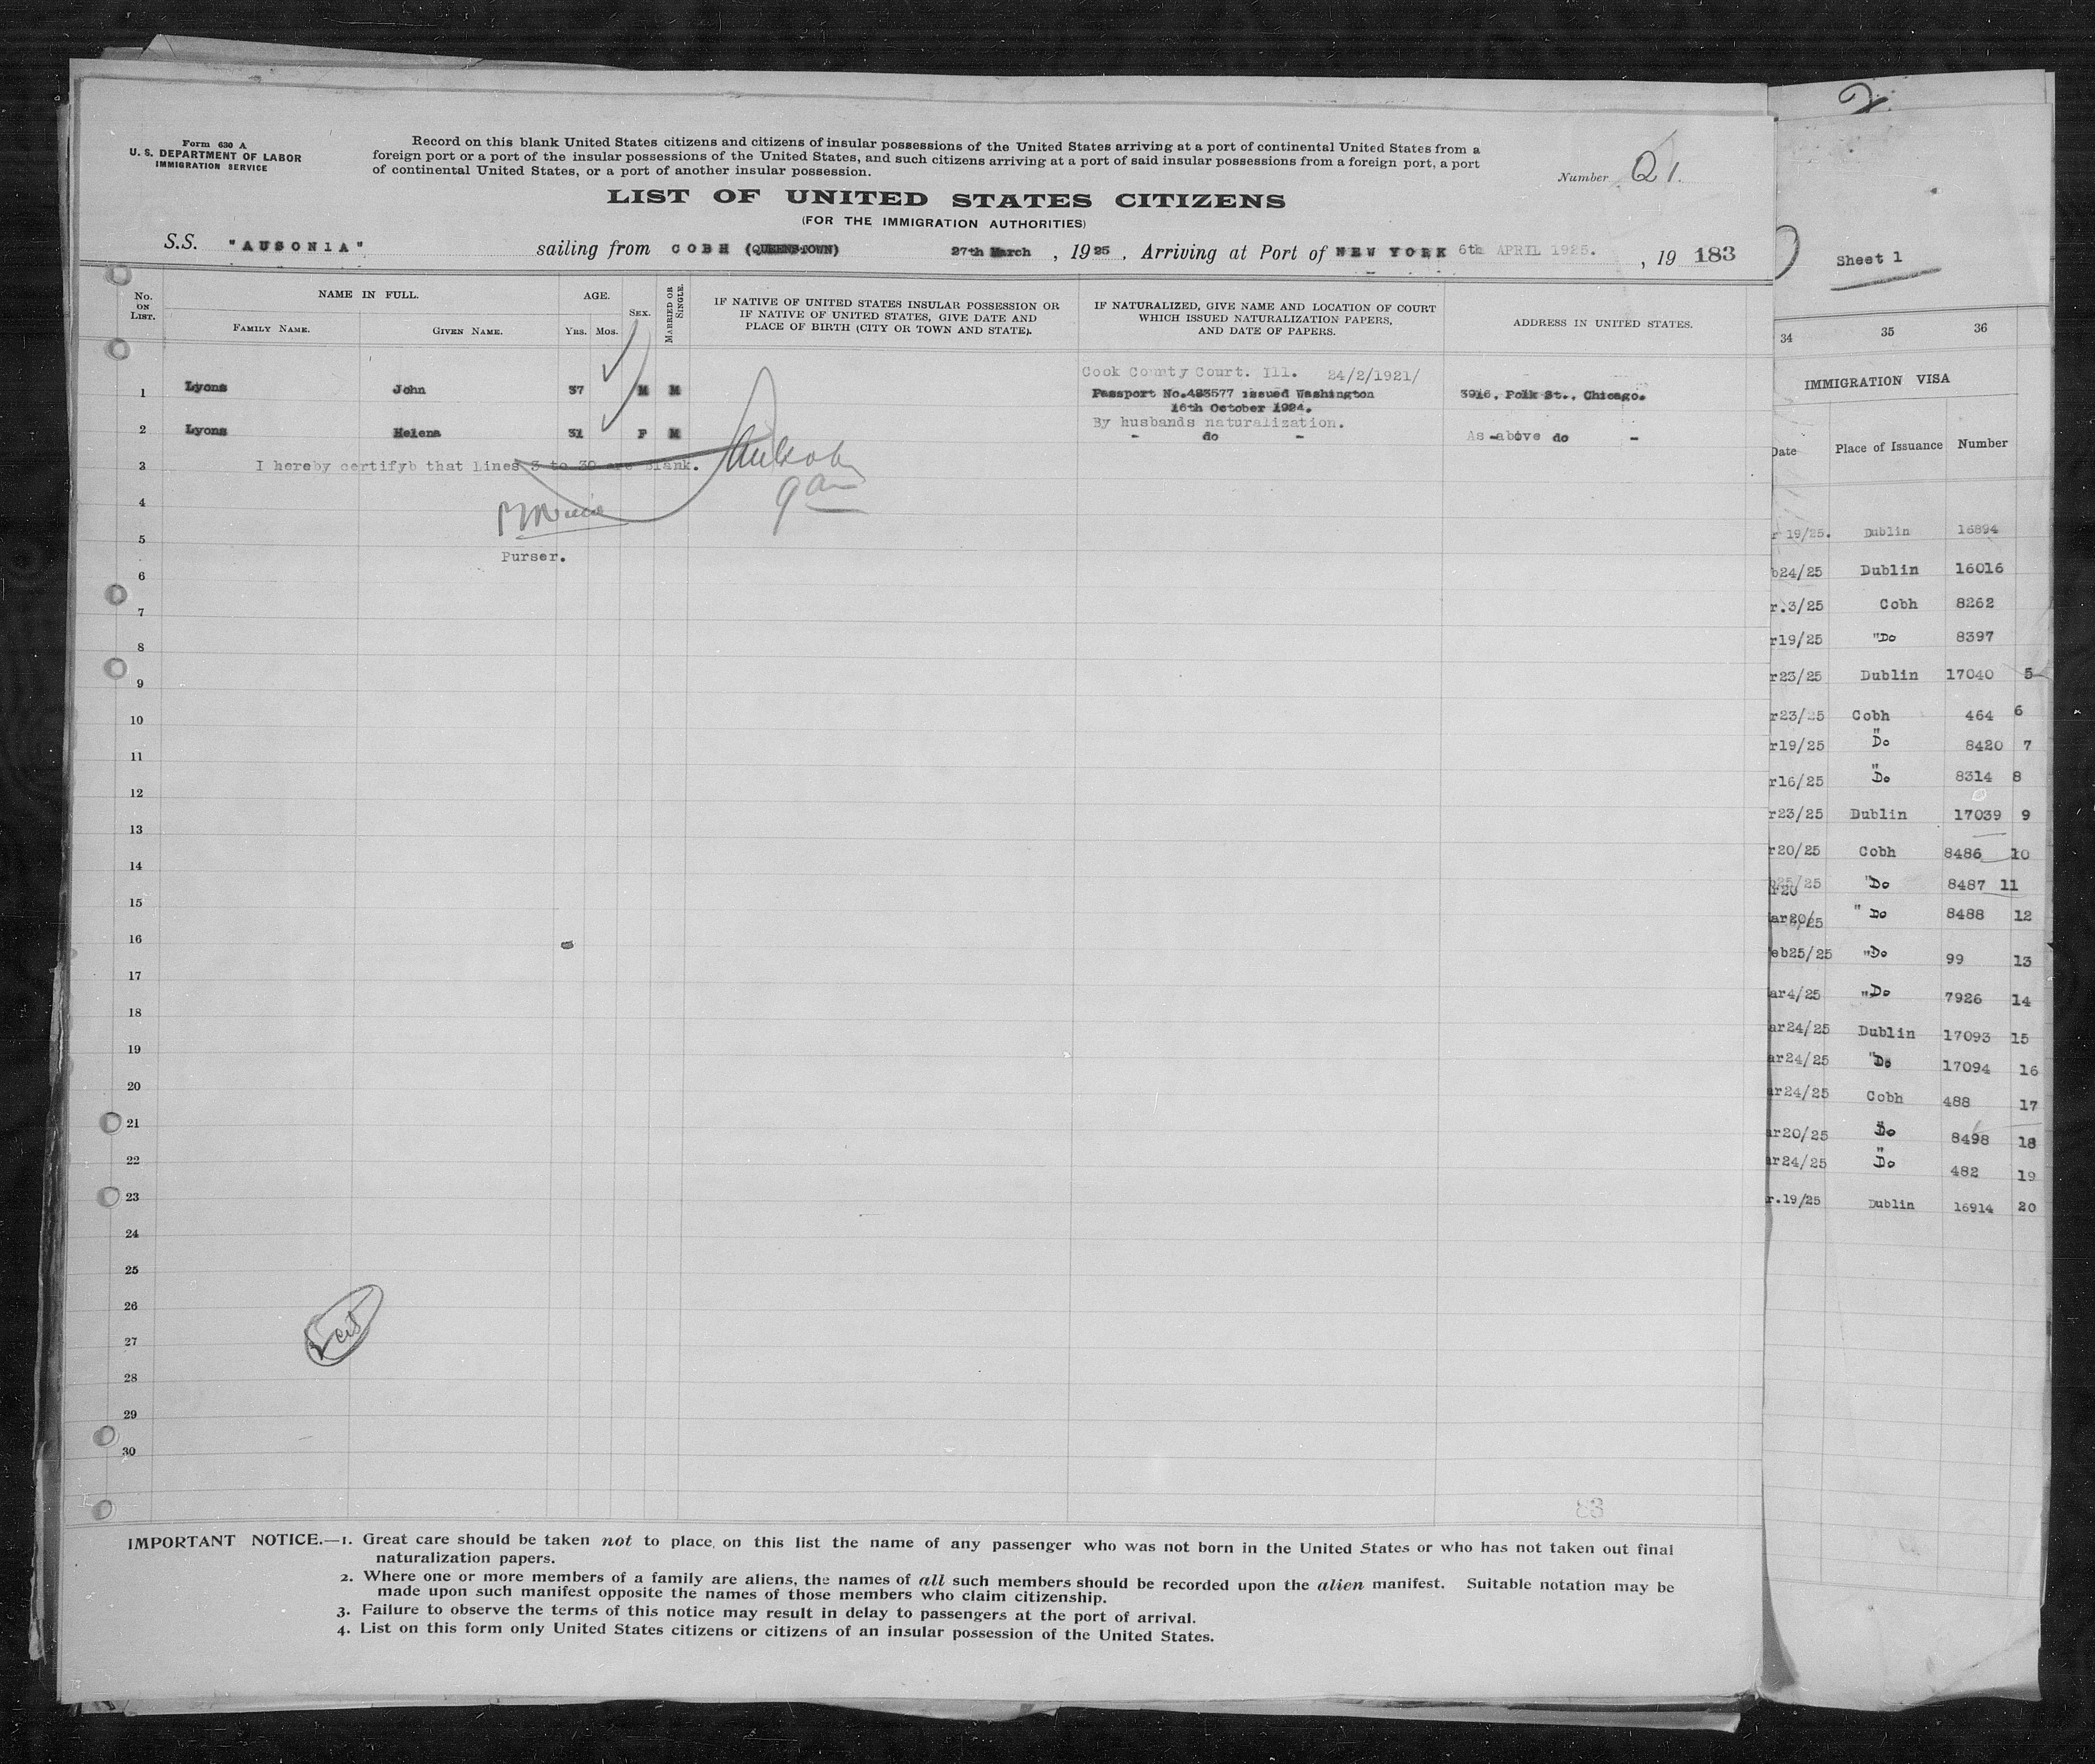 Form 630 A
U. S. DEPARTMENT OF LABOR
IMMIGRATION SERVICE
Record on this blank United States citizens and citizens of insular possessions of the United States arriving at a port of continental United States from a
foreign port or a port of the insular possessions of the United States, and such citizens arriving at a port of said insular possessions from a foreign port, a port
of continental United States, or a port of another insular possession.
Number Q1.
LIST OF UNITED STATES CITIZENS
(FOR THE IMMIGRATION AUTHORITIES)
S.S. "AUSONIA" sailing from COBH (QUEENSTOWN) 27th March, 1925, Arriving at Port of NEW YORK 6th APRIL 1925., 19 183
No. ON LIST.
NAME IN FULL.
FAMILY NAME.
GIVEN NAME.
AGE.
YRS. MOS.
SEX.
MARRIED OR SINGLE.
IF NATIVE OF UNITED STATES INSULAR POSSESSION OR
IF NATIVE OF UNITED STATES, GIVE DATE AND
PLACE OF BIRTH (CITY OR TOWN AND STATE).
IF NATURALIZED, GIVE NAME AND LOCATION OF COURT
WHICH ISSUED NATURALIZATION PAPERS,
AND DATE OF PAPERS.
ADDRESS IN UNITED STATES.
Cook County Court. Ill. 24/2/1921/
1 Lyons John 37 M M Passport No.483577 issued Washington 3916, Polk St., Chicago.
16th October 1924.
By husbands naturalization.
2 Lyons Helena 31 F M - do - As above do -
3 I hereby certifyb that Lines 3 to 30 are blank.
4
5
Purser.
6
7
8
9
10
11
12
13
14
15
16
17
18
19
20
21
22
23
24
25
26
27
28
29
30
83
IMPORTANT NOTICE.—1. Great care should be taken not to place on this list the name of any passenger who was not born in the United States or who has not taken out final
naturalization papers.
2. Where one or more members of a family are aliens, the names of all such members should be recorded upon the alien manifest. Suitable notation may be
made upon such manifest opposite the names of those members who claim citizenship.
3. Failure to observe the terms of this notice may result in delay to passengers at the port of arrival.
4. List on this form only United States citizens or citizens of an insular possession of the United States.
2
Sheet 1
34 35 36
IMMIGRATION VISA
Date Place of Issuance Number
r 19/25. Dublin 16894
b24/25 Dublin 16016
r.3/25 Cobh 8262
r19/25 "Do 8397
r23/25 Dublin 17040 5
r23/25 Cobh 464 6
r19/25 "Do 8420 7
r16/25 "Do 8314 8
r23/25 Dublin 17039 9
r20/25 Cobh 8486 10
25/25 "Do 8487 11
r20
ar20/25 "Do 8488 12
eb25/25 "Do 99 13
ar4/25 "Do 7926 14
ar24/25 Dublin 17093 15
ar24/25 "Do 17094 16
ar24/25 Cobh 488 17
ar20/25 "Do 8498 18
ar24/25 "Do 482 19
r.19/25 Dublin 16914 20